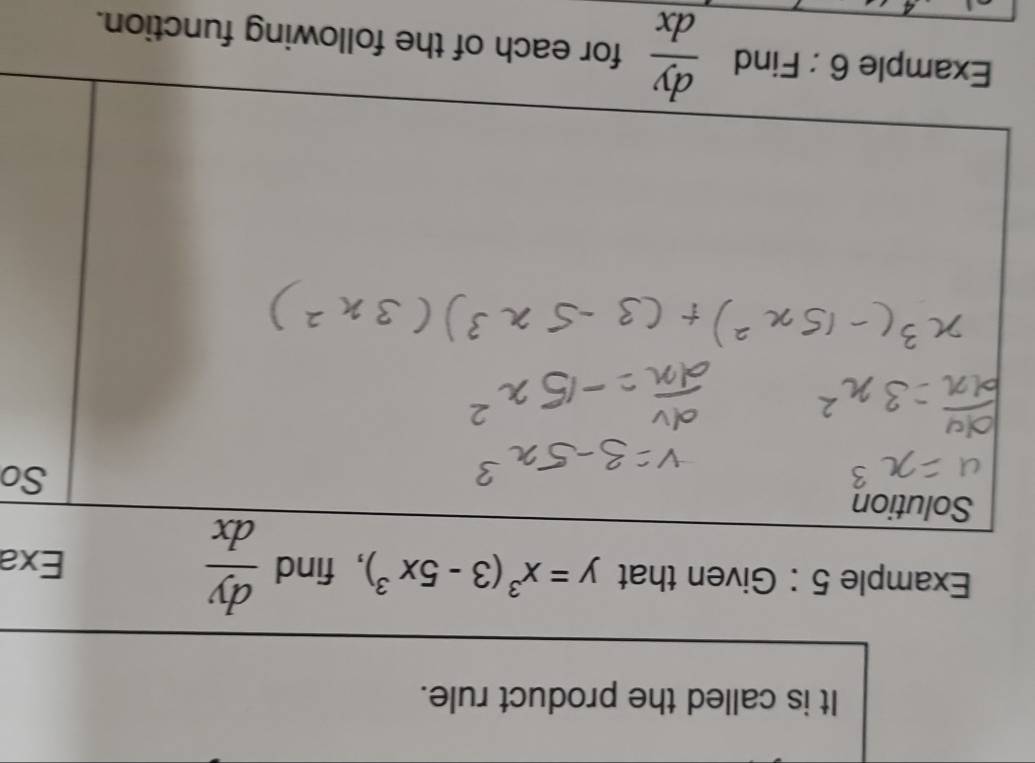 It is called the product rule.
Example 5 : Given that y = x³(3 - 5x³), find dy/dx
Exa
Solution
So
u = x³ v = 3 - 5x³
du/dx = 3x² dv/dx = -15x²
x³(-15x²) + (3 - 5x³)(3x²)
Example 6 : Find dy/dx for each of the following function.